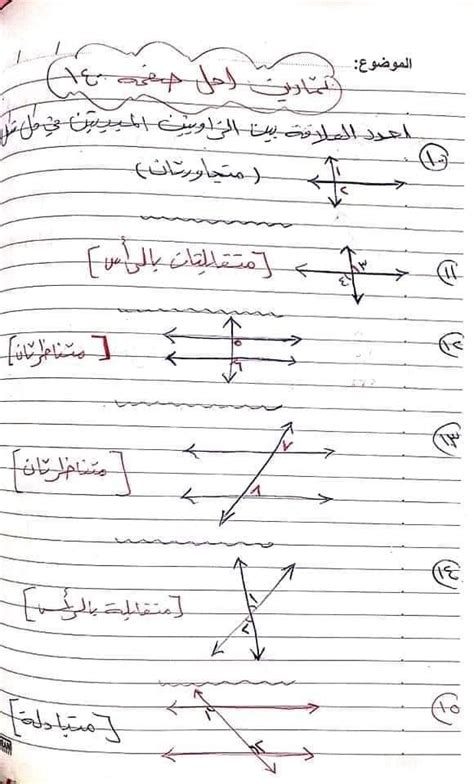 الموضوع:
تمارين أحل صفحة ١٤٠
أحدد العلاقة بين الزاويتين المبينتين في كل شكل
١٠
١
٢
(متجاورتان)
١١
٣
٤
[متقابلتان بالرأس]
١٢
٥
٦
[متناظرتان]
١٣
٧
٨
[متناظرتان]
١٤
١
٢
[متقابلة بالرأس]
١٥
٣
[متبادلة]